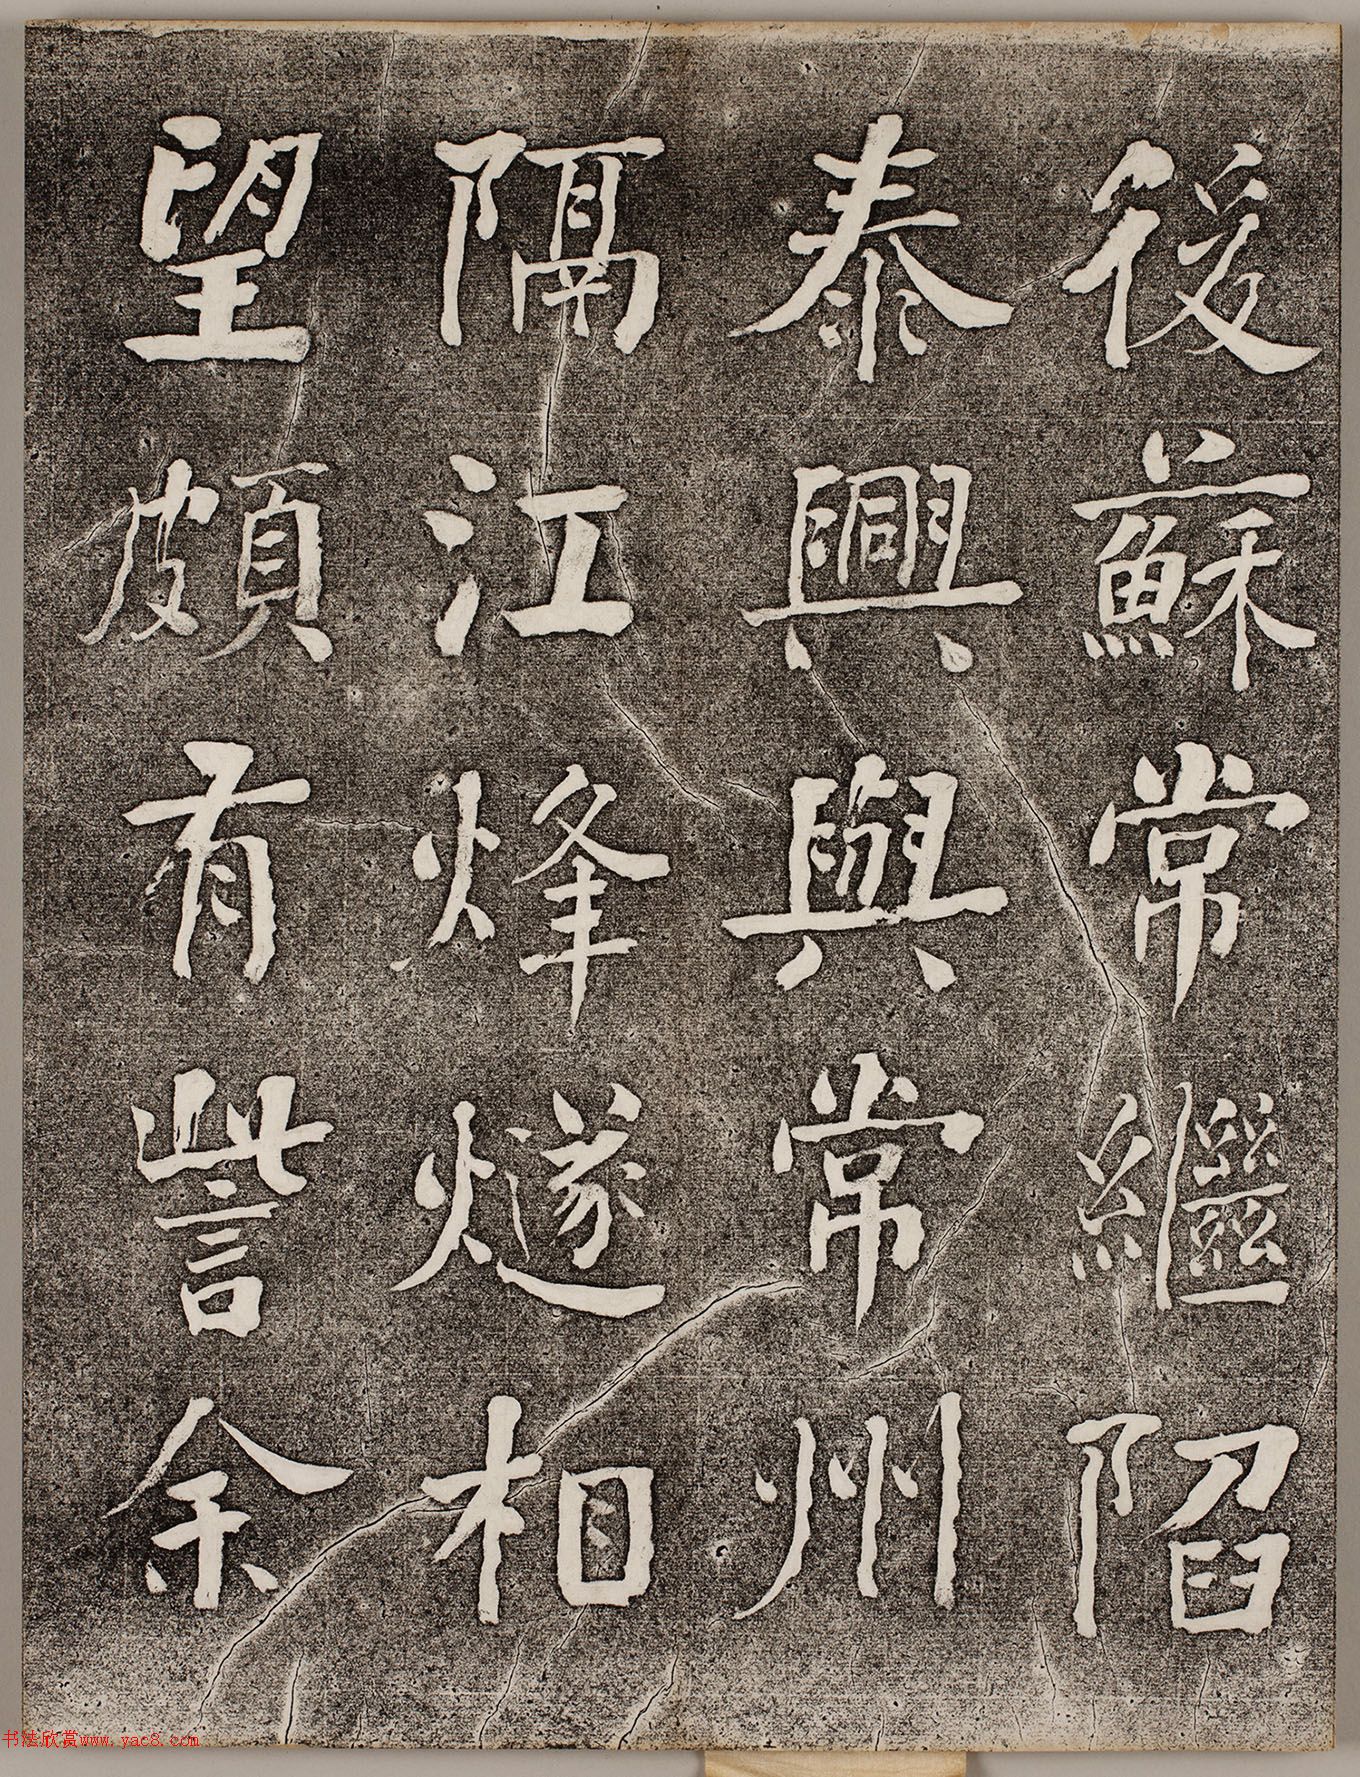 後蘇常繼陷
泰興與常州
隔江烽燧相
望頗有訾余
书法欣赏www.yac8.com